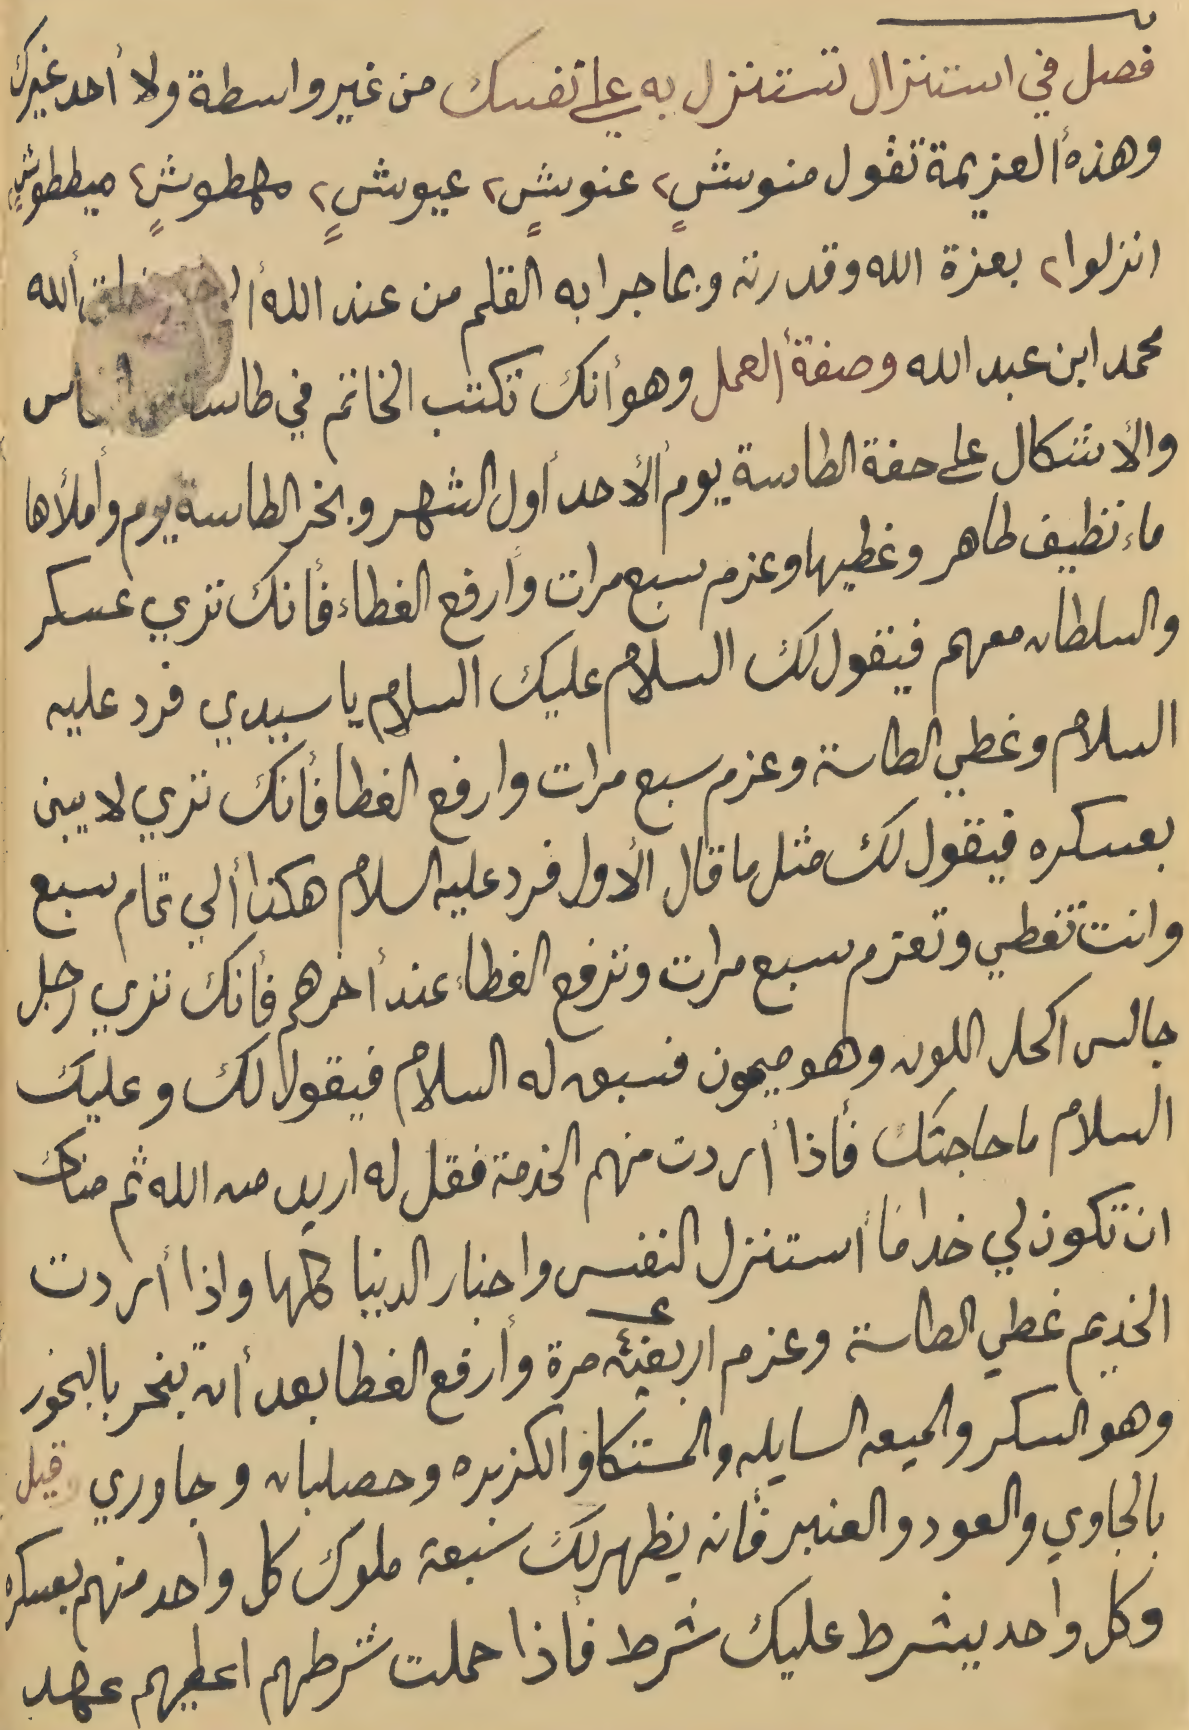 فصل في استنزال تستنزل به على نفسك من غير واسطة ولا أحد غيرك
وهذه العزيمة تقول منوشٍ ٢ عنوشٍ ٢ عيوشٍ ٢ مهطوشٍ ٢ ميططوشٍ
انزلوا ٢ بعزة الله وقدرته وبما جرا به القلم من عند الله خلق الله
محمد ابن عبد الله وصفة العمل وهو أنك تكتب الخاتم في طاسة
والأشكال على حفة الطاسة يوم الأحد أول الشهر وبخر الطاسة يوم وأملأها
ماء نظيف طاهر وغطيها وعزم سبع مرات وأرفع الغطاء فأنك تري عسكر
والسلطان معهم فيقول لك السلام عليك السلام يا سيدي فرد عليه
السلام وغطي الطاسة وعزم سبع مرات وارفع الغطا فأنك تري لابين
بعسكره فيقول لك مثل ما قال الأول فرد عليه السلام هكذا ألي تمام سبع
وانت تغطي وتعزم سبع مرات وترفع الغطاء عند أخرهم فأنك تري رجل
جالس اكحل اللون وهو ميمون فسبق له السلام فيقول لك وعليك
السلام ما حاجتك فأذا أردت منهم الخدمة فقل له اريد من الله ثم منك
ان تكون لي خداما أستنزل النفس واخبار الدنيا كلها واذا أردت
الخديم غطي الطاسة وعزم اربعين مرة وأرفع الغطا بعد أن تبخر بالبخور
وهو السكر والميعه السايله والمستكا والكزبره وحصلبان وجاوري قيل
بالجاوي والعود والعنبر فأنه يظهر لك سبعة ملوك كل واحد منهم بعسكره
وكل واحد يشرط عليك شرط فأذا حملت شرطهم اعطيهم عهد